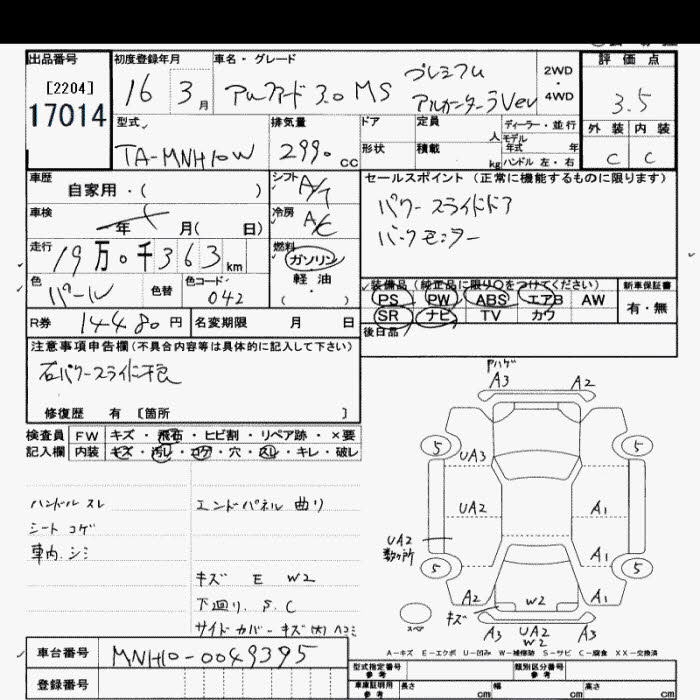 出品番号 初度登録年月 車名・グレード 評価点
[2204] 17014
16 3月 アルファード 3.0 MS プレミアム アルカンターラVer
2WD
4WD
3.5
外装 内装
C C
型式 排気量 ドア 定員 人 ディーラー・並行
モデル年式 年
TA-MNH10W 2990 cc 形状 積載 kg ハンドル 左・右
車歴 シフト セールスポイント (正常に機能するものに限ります)
自家用・( ) A/T
パワースライドドア
車検 年 月( 日) 冷房 A/C
バックモニター
走行 19万0千363km 燃料 ガソリン
軽油
・( )
色 パール 色替 色コード 042
装備品 (純正品に限り○をつけてください) 新車保証書
PS PW ABS エアB AW 有・無
SR ナビ TV カワ
R券 14480円 名変期限 月 日
後日品
注意事項申告欄(不具合内容等は具体的に記入して下さい)
右パワースライド不良
修復歴 有 [箇所 ]
検査員 FW キズ・飛石・ヒビ割・リペア跡・×要
記入欄 内装 キズ・汚レ・コゲ・穴・スレ・キレ・破レ
ハンドル スレ
シート コゲ
車内 シミ
エンドパネル 曲り
キズ E W2
下廻り S.C
サイドカバーキズ(大)ヘコミ
Pハゲ
A3 A2
5 5
UA3
UA2 A1
UA2 数ヶ所
A1
5 5
A2 W2 A1
キズ
スペア
A3 UA2 A3
W2
A-キズ E-エクボ U-凹み W-補修跡 S-サビ C-腐食 XX-交換済
車台番号 MNH10-0049395
登録番号
型式指定番号 参考 類別区分番号 参考
車庫証明用 参考 長さ cm 幅 cm 高さ cm